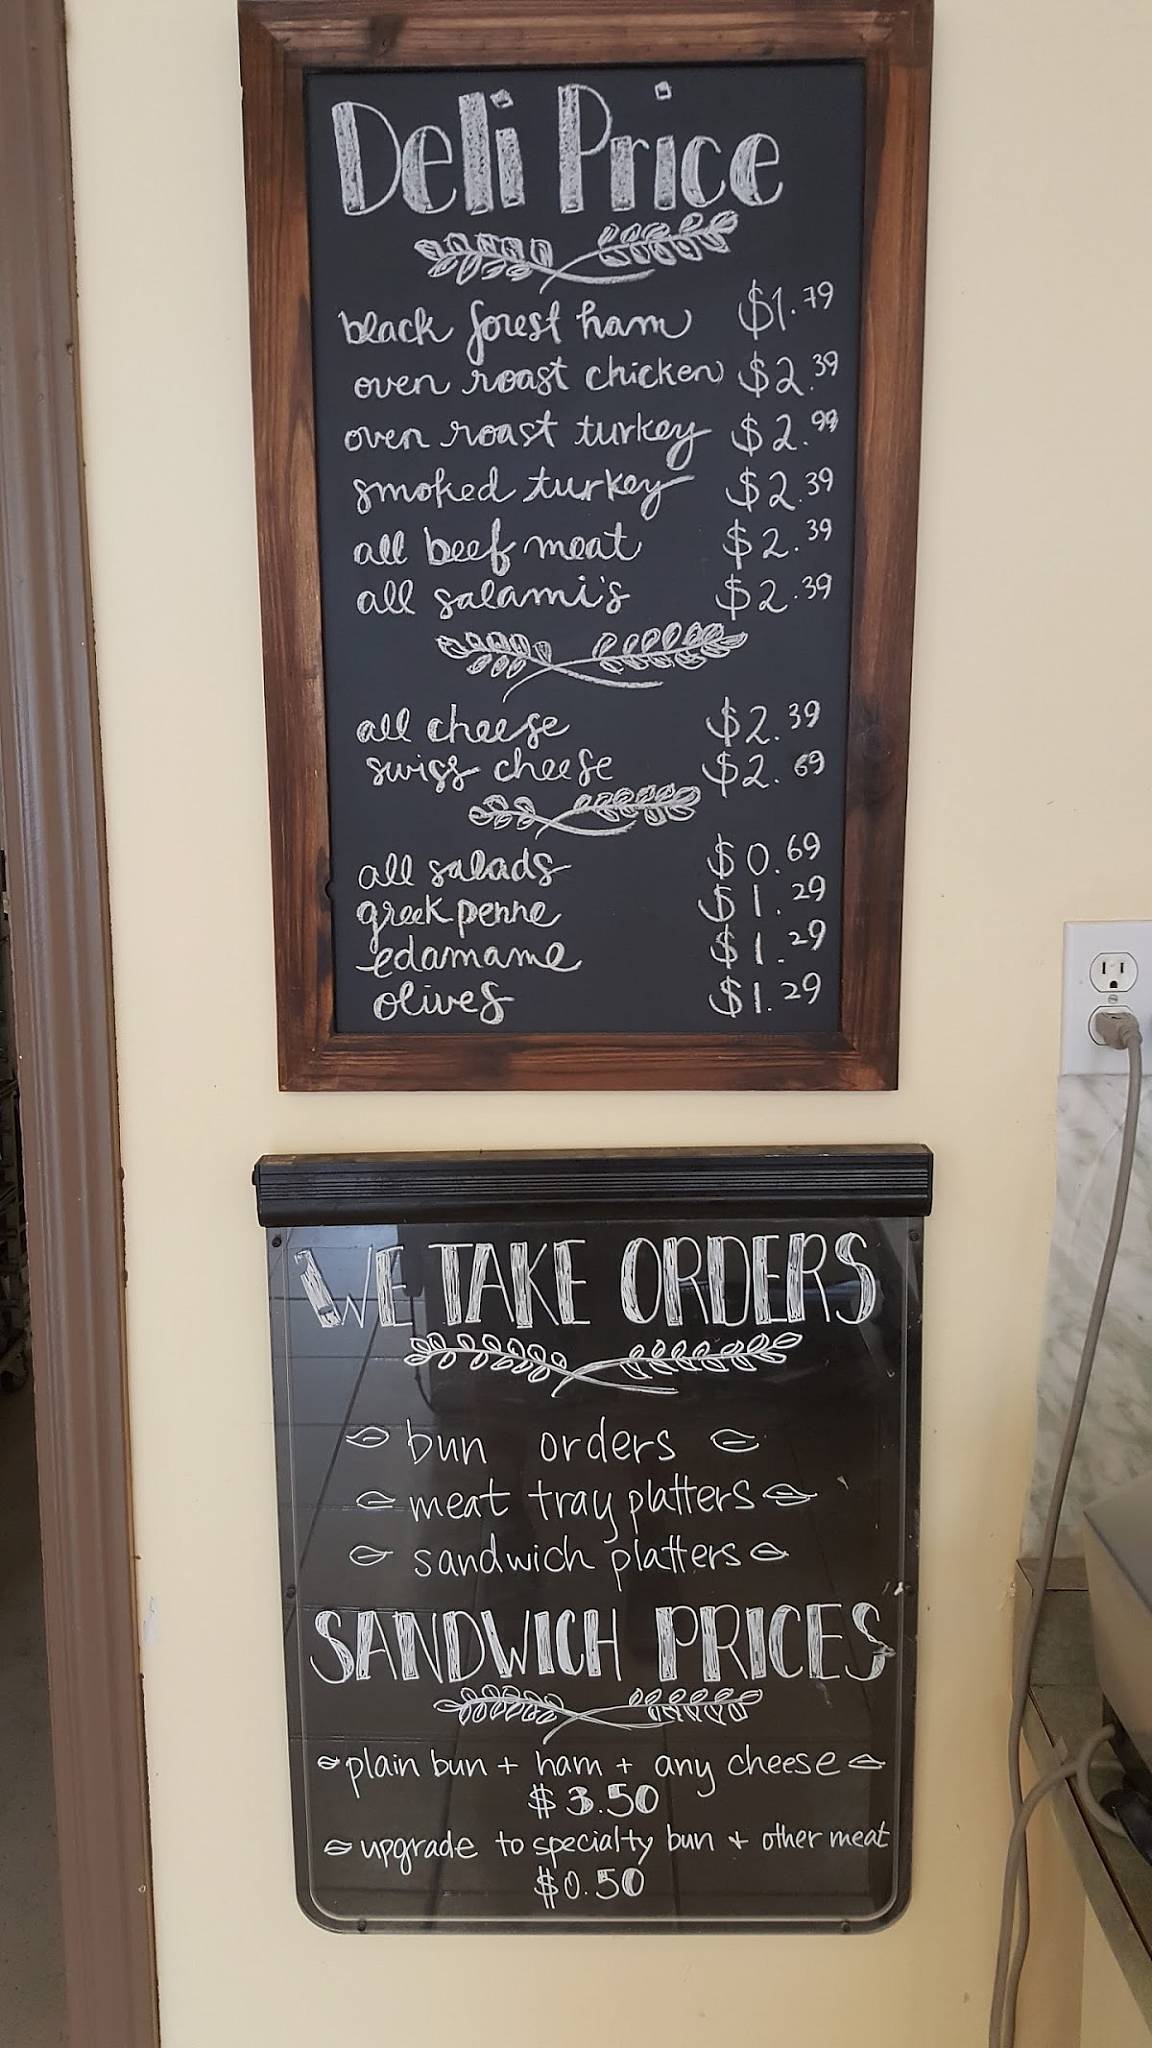 Deli Price
black forest ham $1.79
oven roast chicken $2.39
oven roast turkey $2.99
smoked turkey $2.39
all beef meat $2.39
all salami's $2.39
all cheese $2.39
swiss cheese $2.69
all salads $0.69
greek penne $1.29
edamame $1.29
olives $1.29
WE TAKE ORDERS
bun orders
meat tray platters
sandwich platters
SANDWICH PRICES
plain bun + ham + any cheese
$3.50
upgrade to specialty bun + other meat
$0.50